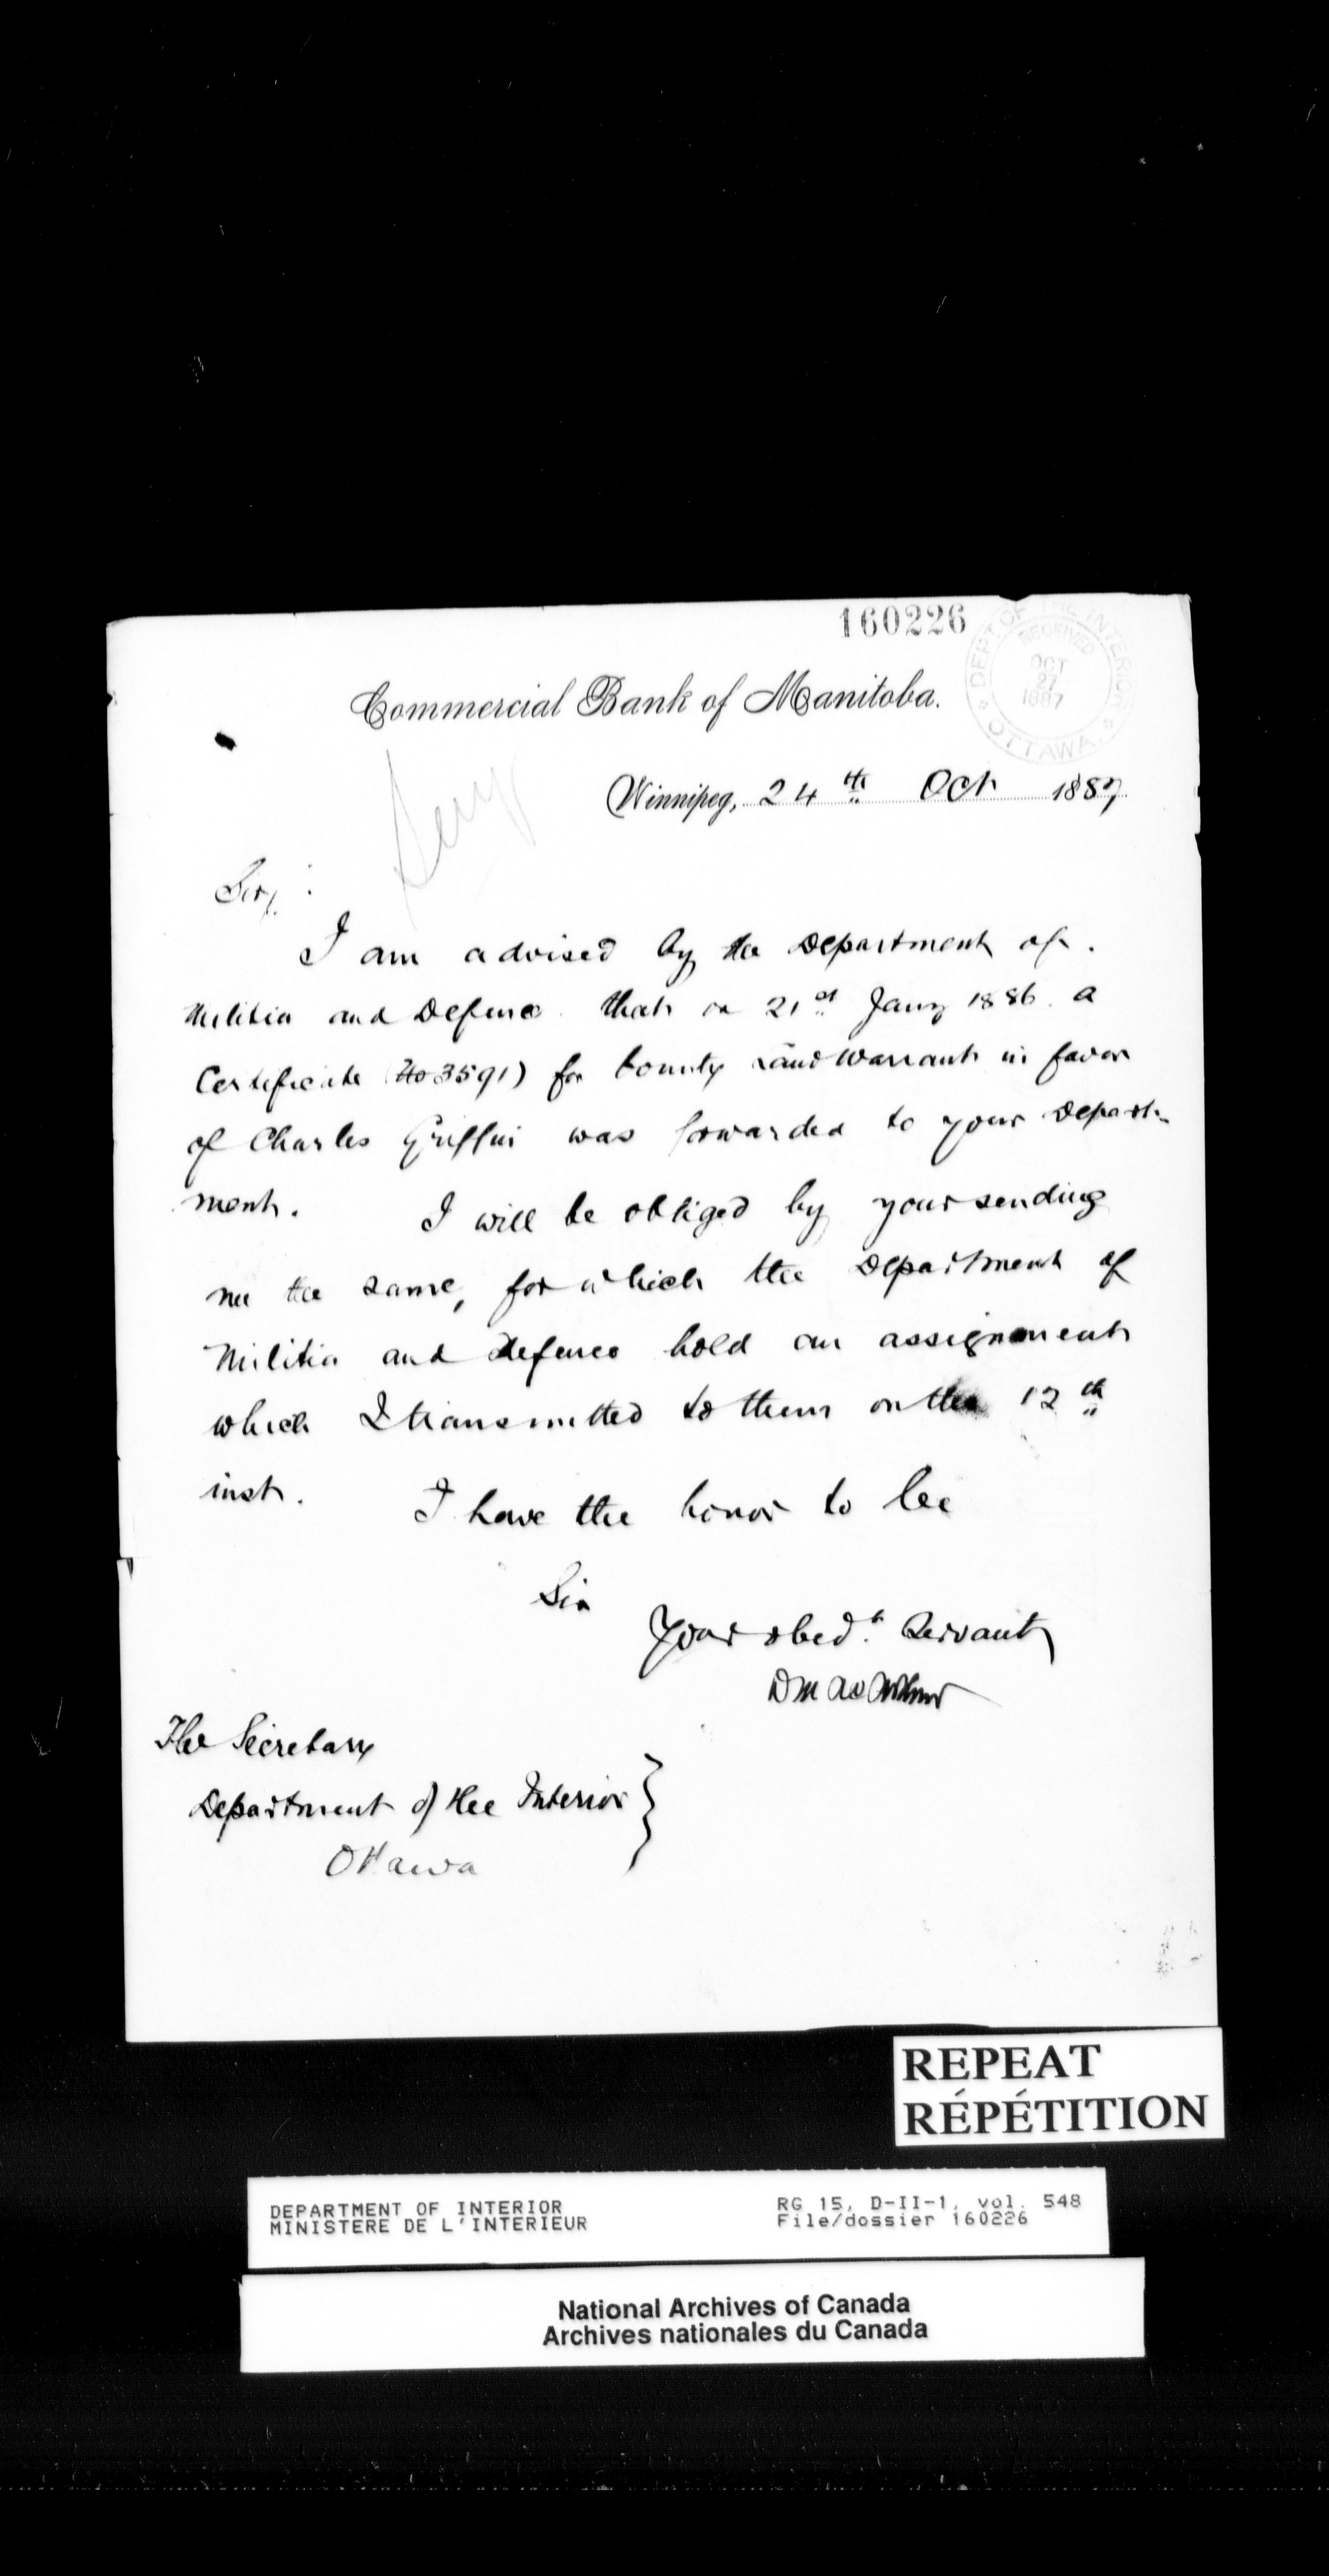 160226
DEPT OF THE INTERIOR
RECEIVED
OCT
27
1887
OTTAWA
Commercial Bank of Manitoba.
Winnipeg, 24th Oct 1887
Sir,
I am advised by the Department of
Militia and Defence that on 21st Jany 1886 a
Certificate (No 3591) for bounty Land Warrant in favor
of Charles Griffin was forwarded to your Depart-
ment. I will be obliged by your sending
me the same, for which the Department of
Militia and Defence hold an assignment
which I transmitted to them on the 12th
inst. I have the honor to be
Sir
Your obedt. Servant
The Secretary
Department of the Interior
Ottawa
REPEAT
RÉPÉTITION
DEPARTMENT OF INTERIOR RG 15, D-II-1, vol. 548
MINISTERE DE L'INTERIEUR File/dossier 160226
National Archives of Canada
Archives nationales du Canada